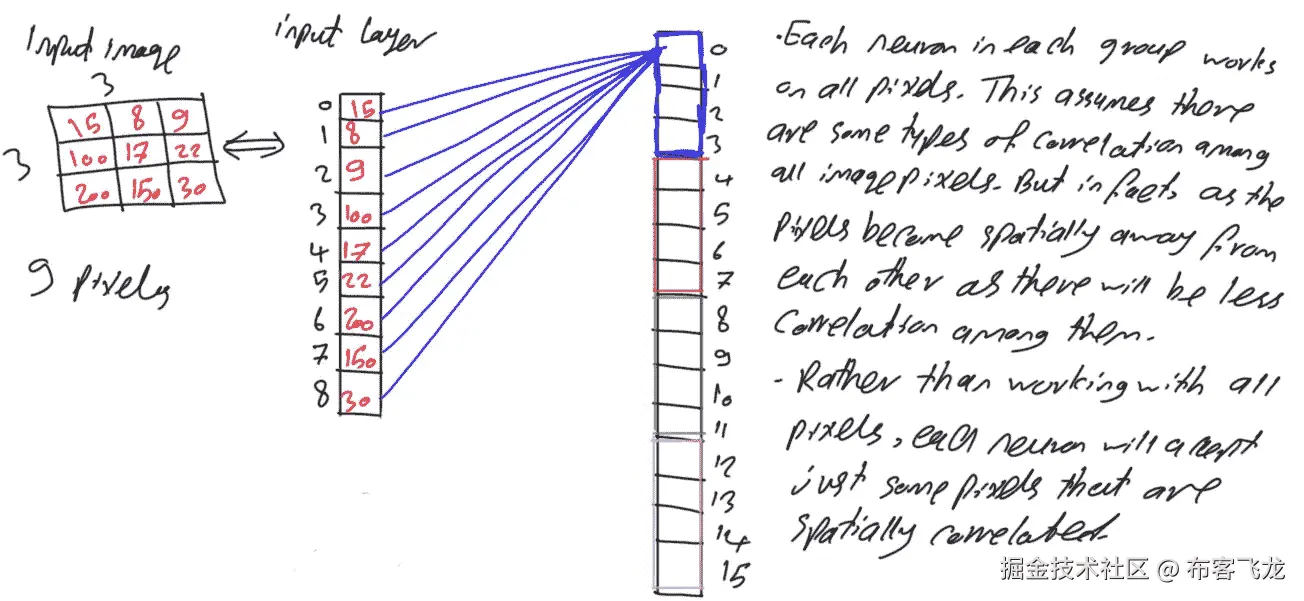 Input image
3
15 8 9
3
100 17 22
200 150 30
9 pixels
input layer
0 15
1 8
2 9
3 100
4 17
5 22
6 200
7 150
8 30
0
1
2
3
4
5
6
7
8
9
10
11
12
13
14
15
. Each neuron in each group works
on all pixels. This assumes there
are some types of correlation among
all image pixels. But in facts as the
pixels become spatially away from
each other as there will be less
Correlation among them.
- Rather than working with all
pixels, each neuron will accept
just some pixels that are
spatially correlated.
掘金技术社区 @ 布客飞龙